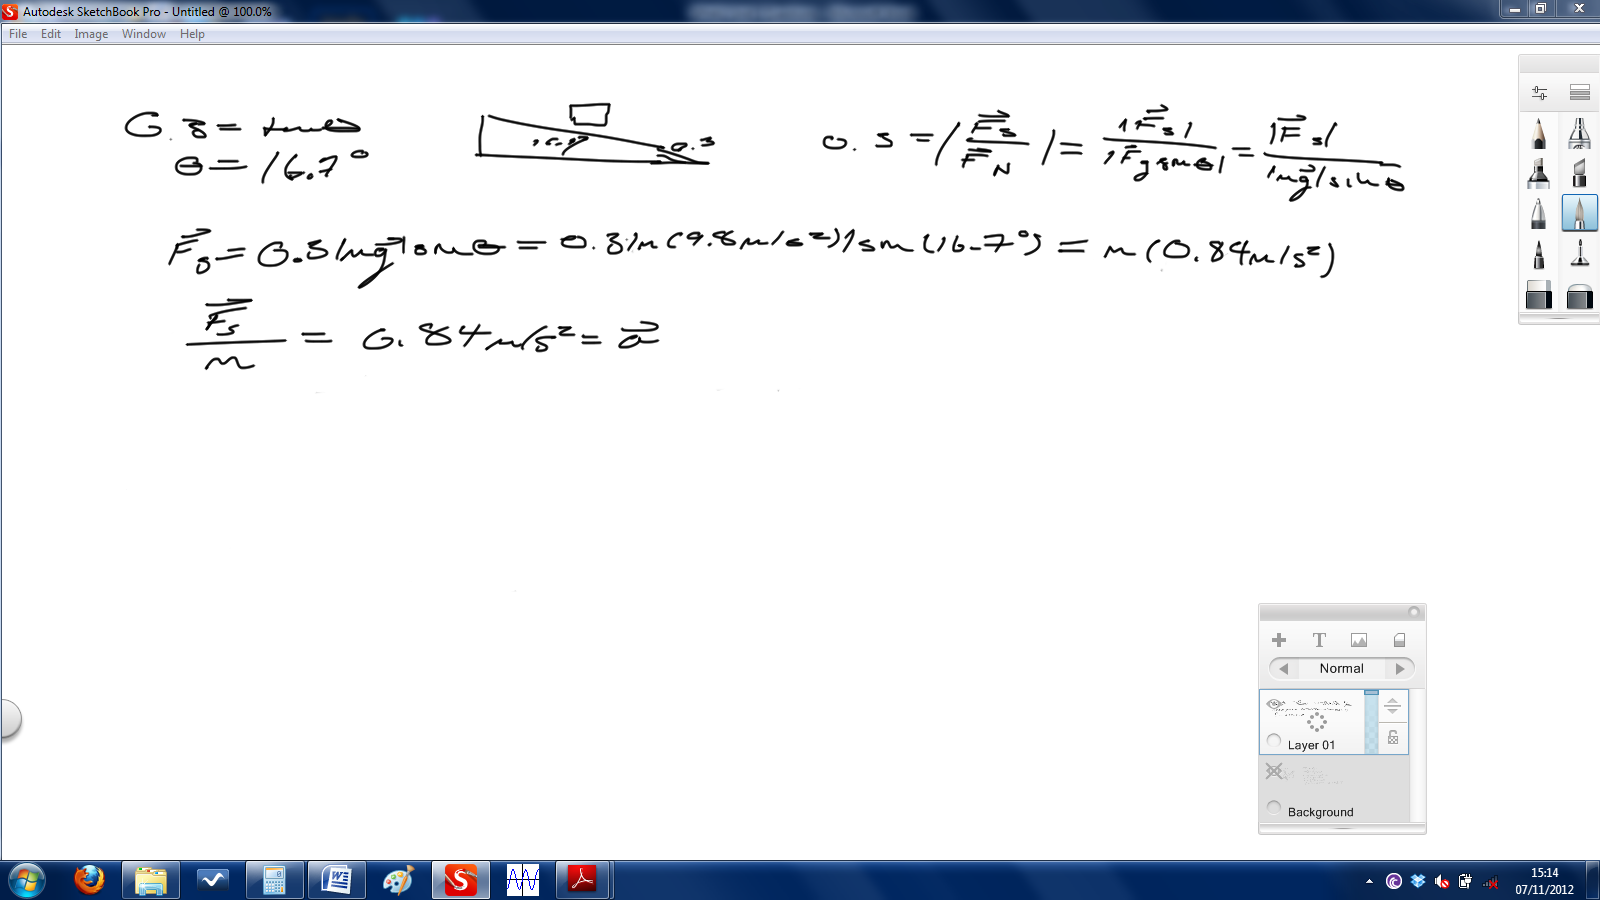 Autodesk SketchBook Pro - Untitled @ 100.0%
File Edit Image Window Help
0.3 = tanθ
θ = 16.7°
16.7° 0.3
0.3 = |F⃗s / F⃗N| = |F⃗s| / |F⃗g sinθ| = |F⃗s| / |mg⃗| sinθ
F⃗s = 0.3|mg⃗| sinθ = 0.3|m(9.8m/s²)| sin(16.7°) = m(0.84m/s²)
F⃗s / m = 0.84m/s² = a⃗
T
Normal
Layer 01
Background
15:14
07/11/2012